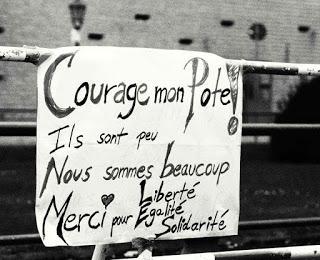 Courage mon Pote!
Ils sont peu
Nous sommes beaucoup
Merci pour Liberté
Égalité
Solidarité